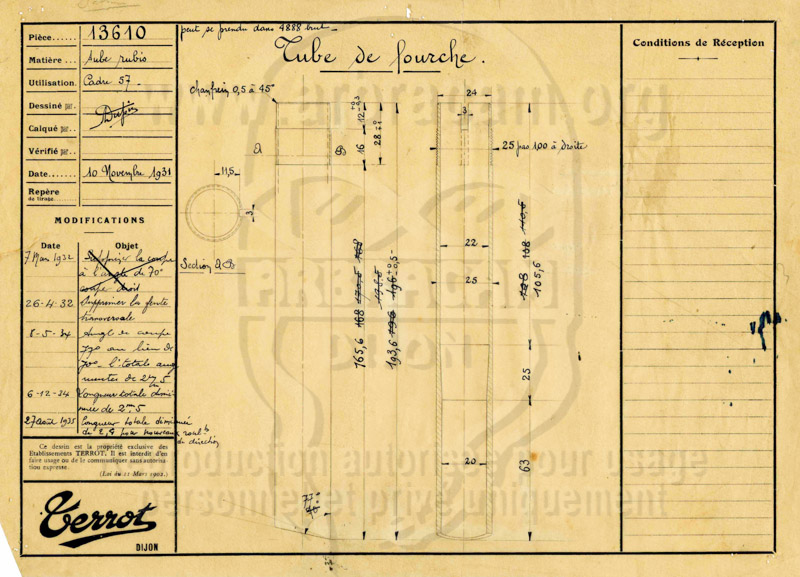 Pièce...... 13610
Matière ... Tube rubis
Utilisation. Cadre 57
Dessiné par.
Calqué par..
Vérifié par..
Date....... 10 Novembre 1931
Repère
de tirage
MODIFICATIONS
Date Objet
7 Mars 1932 Supprimer la coupe
à l'angle de 70°
coupe droit
26-4-32 Supprimer la fente
transversale
8-5-34 Angle de coupe
77° au lieu de
70° l'totale aug
mentée de 2m/m 5
6-12-34 Longueur totale dimi
nuée de 2m/m 5
27 août 1935 Longueur totale diminuée
de 2,4 pour nouveaux roul.ts
de direction
Ce dessin est la propriété exclusive des
Etablissements TERROT. Il est interdit d'en
faire usage ou de le communiquer sans autorisa-
tion expresse.
(Loi du 11 Mars 1902.)
Terrot
DIJON
peut se prendre dans 4888 brut
Tube de fourche.
Chanfrein 0,5 à 45°
12 +0 -0,5
16
28
A
B
11,5
3
Section A B
165,6 168 170,5 168
193,6 196 196 +0 -0,5 198,5
77
24
3
25 pas 100 à droite
22
25
20
108 108 110,5
105,6
25
63
Conditions de Réception
www.arbracam.org
ARBRACAM
DIJON
reproduction autorisée pour usage
personnel et privé uniquement